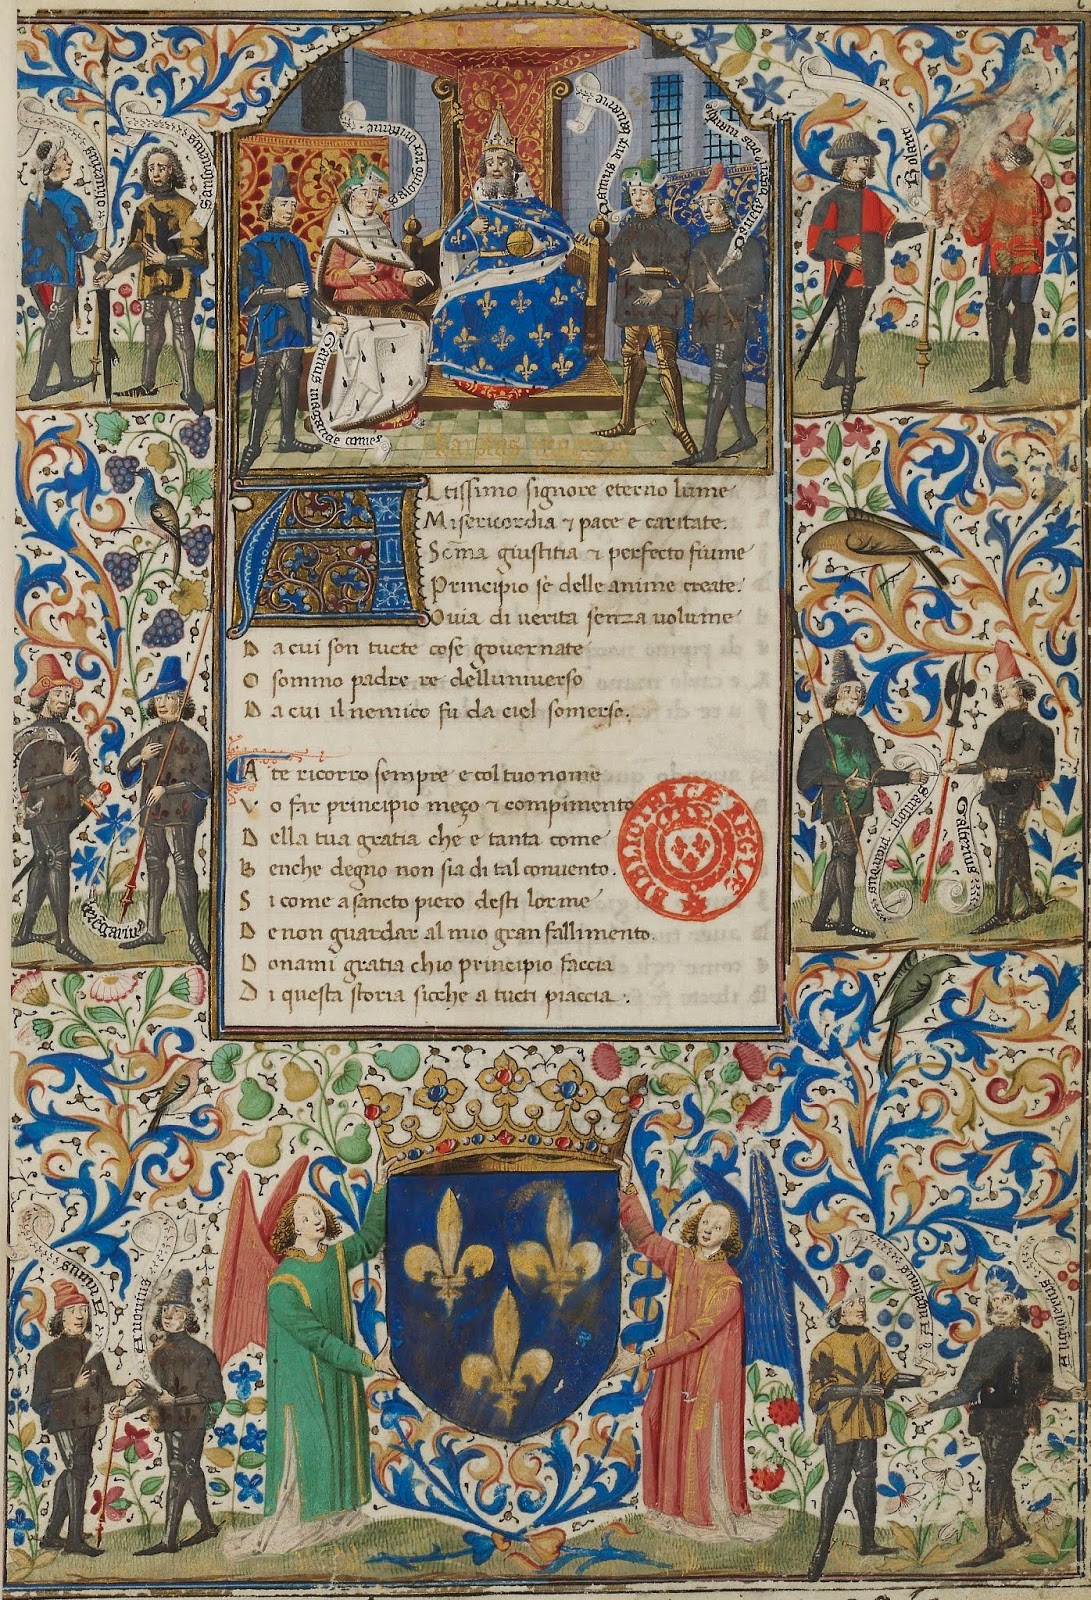 oliverius
Salomo rex britanie
Namus dux bauarie
Rolant
Ganus magancie comes
karolus magnus
Altissimo signore eterno lume
Misericordia ⁊ pace e caritate.
Som̄a giustitia ⁊ perfecto fiume
Principio se delle anime create.
O uia di uerita senza uolume
D a cui son tucte cose gouernate
O sommo padre re delluniuerso
D a cui il nemico fu da ciel somerso.
A te ricorro sempre e col tuo nome
V o far principio meço ⁊ compimento
D ella tua gratia che e tanta come
B enche degno non sia di tal conuento.
S i come a sancto piero desti lorme
D e non guardar al mio gran fallimento.
D onami gratia chio principio faccia
D i questa storia sicche a tucti piaccia.
BIBLIOTHECAE REGIAE
berengarius
Galterius
Angelinus